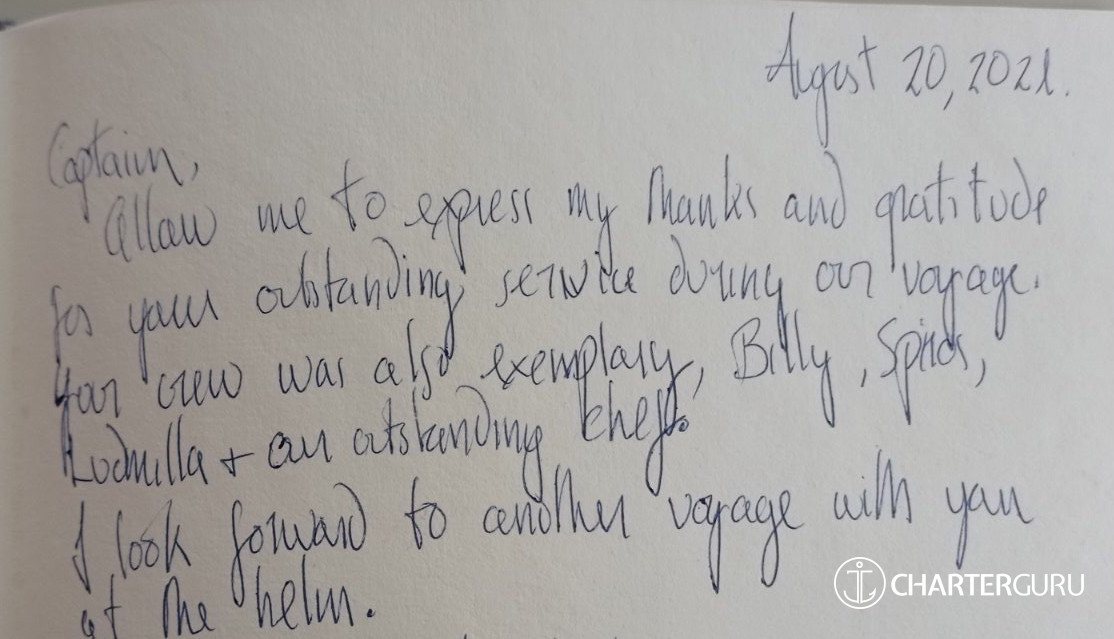 August 20, 2021.
Captain,
Allow me to express my thanks and gratitude
for your outstanding service during our voyage.
Your crew was also exemplary, Billy, Spiros,
Ludmilla + an outstanding chef.
I look forward to another voyage with you
at the helm.
CHARTERGURU